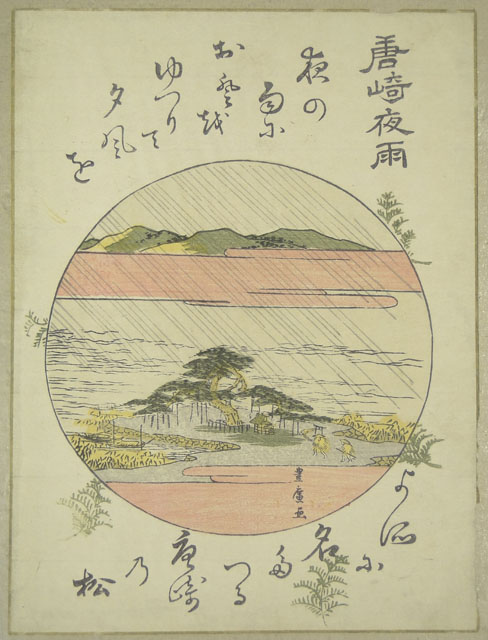 唐崎夜雨
夜の
雨に
おとを
ゆつりて
夕風
を
よそに
名
た
つる
唐崎
乃
松
豊廣画